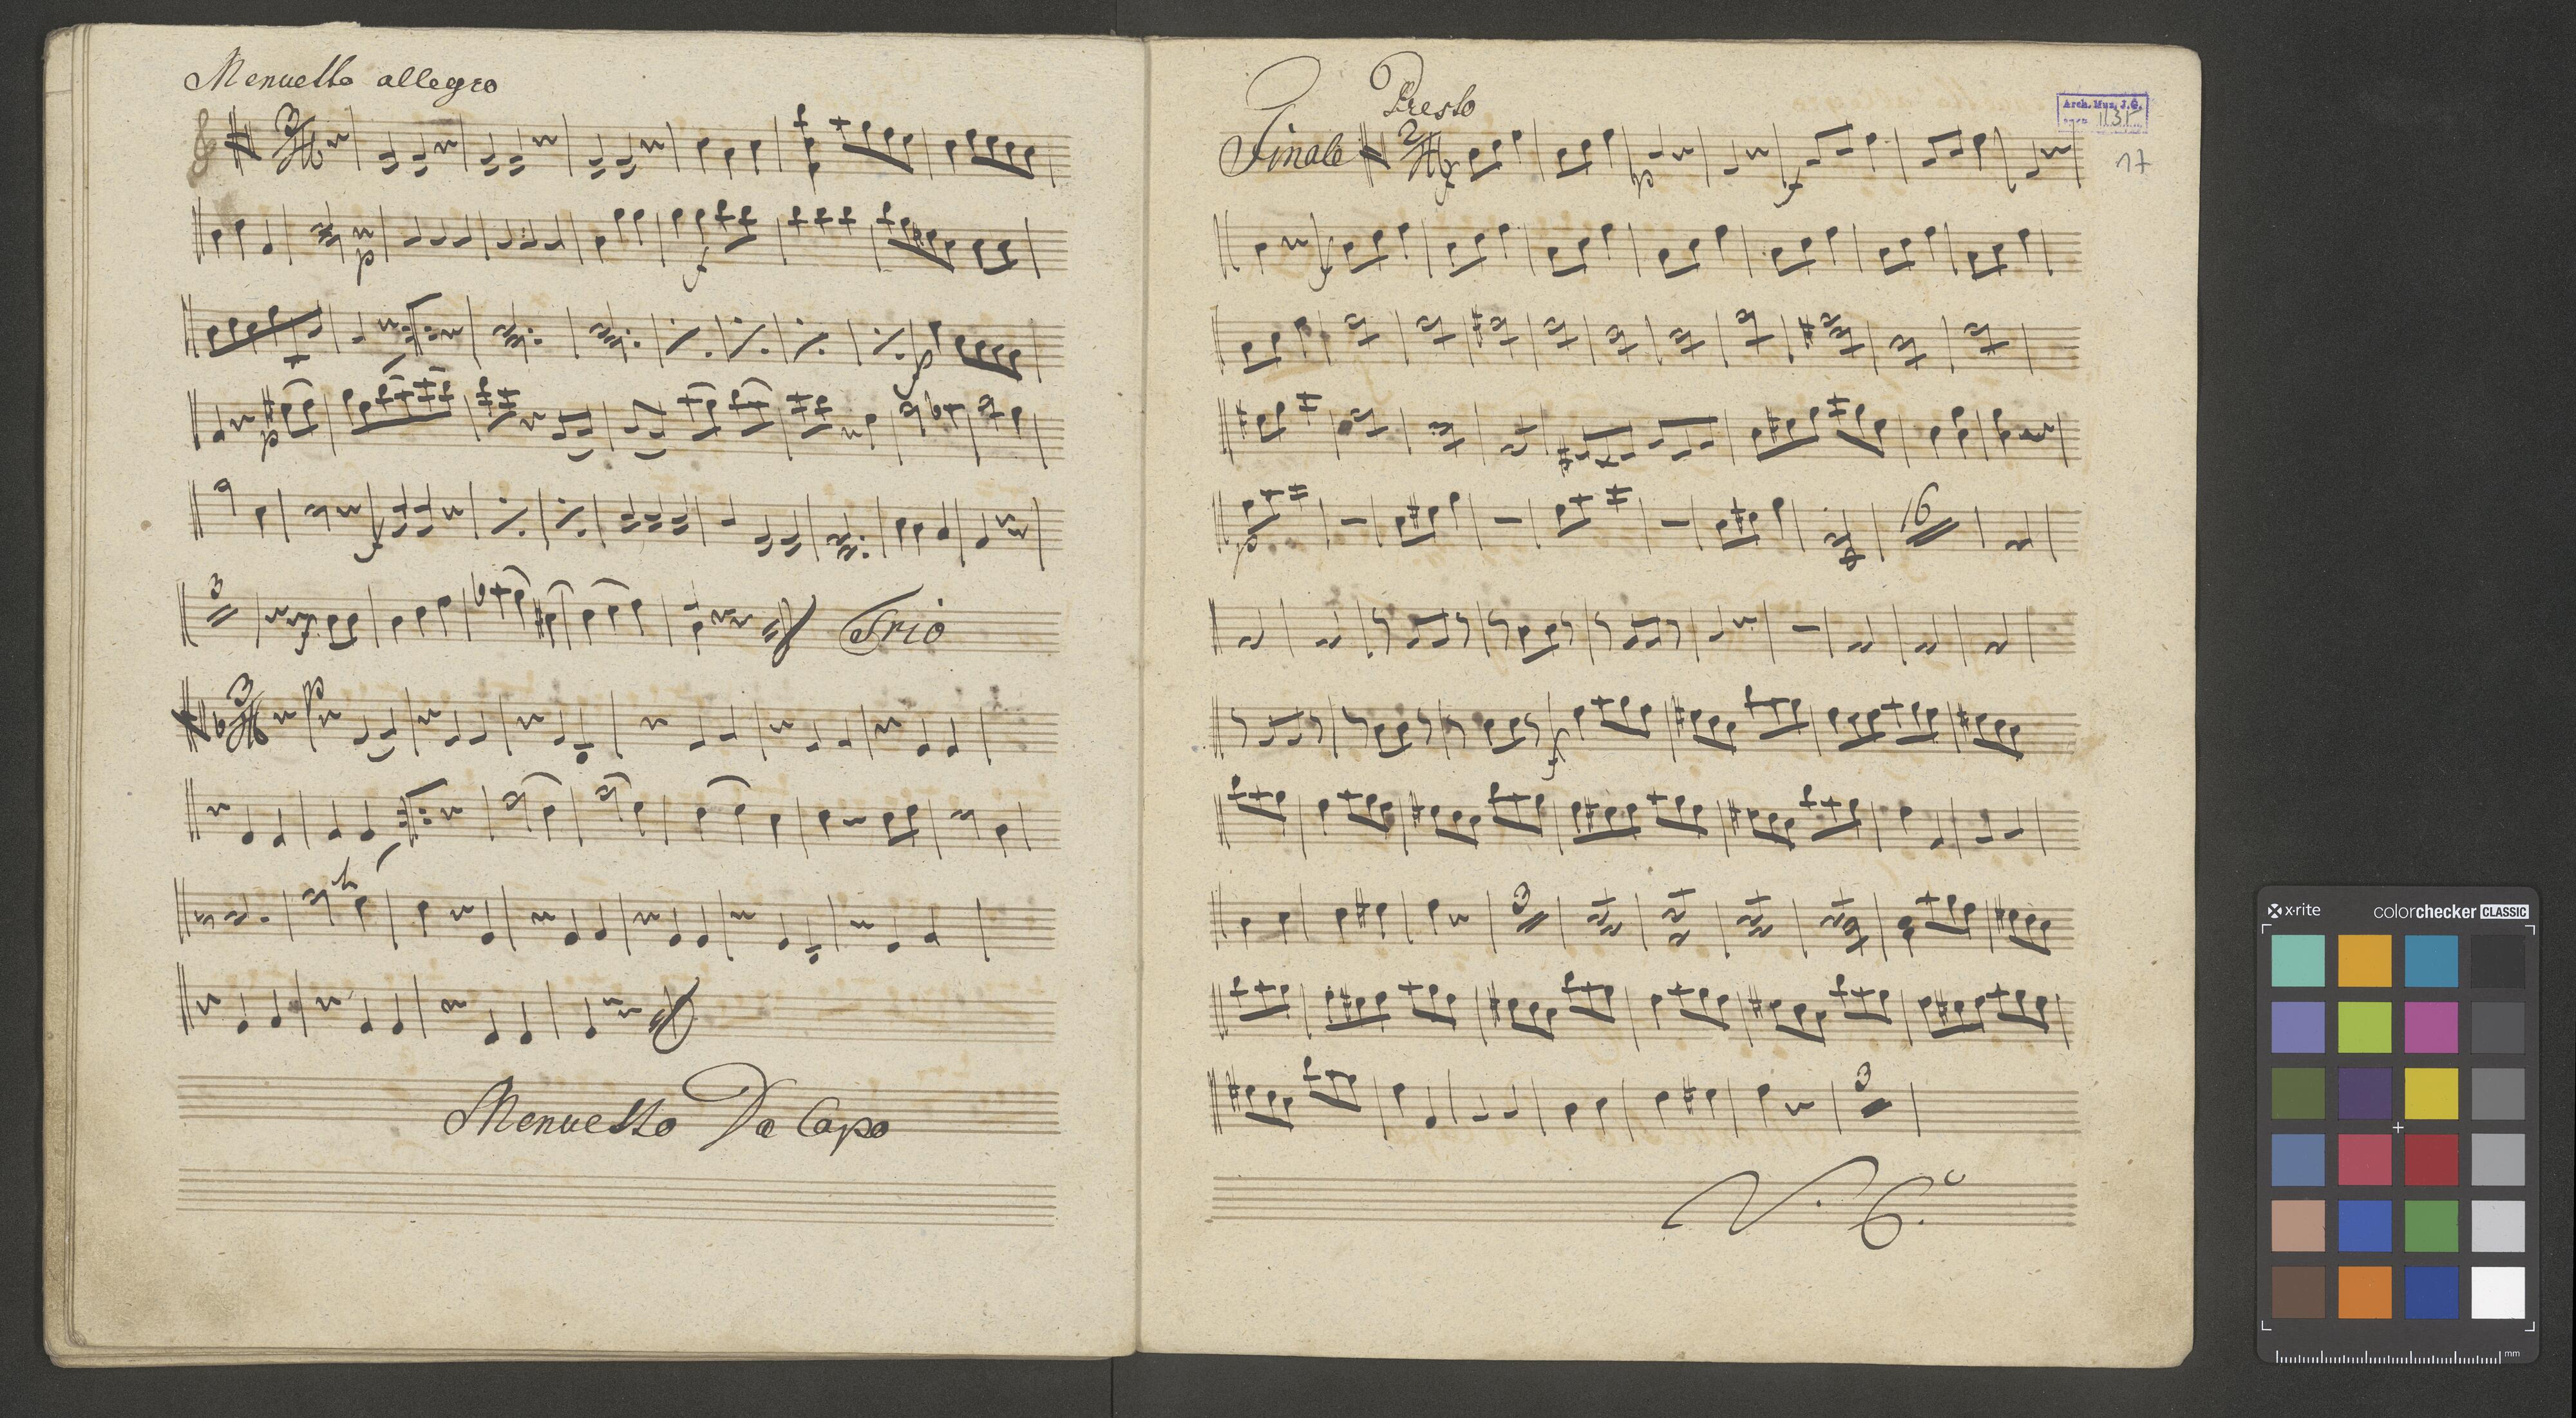 Menuetto allegro
3
p
f
f
p
f
3
f
Trio
3
p
Menuetto Da Capo
Presto
Finale
2
f
p
f
f
p
16
f
3
3
V. S.
Arch. Mus. J. G.
1131
17
x-rite
colorchecker CLASSIC
mm